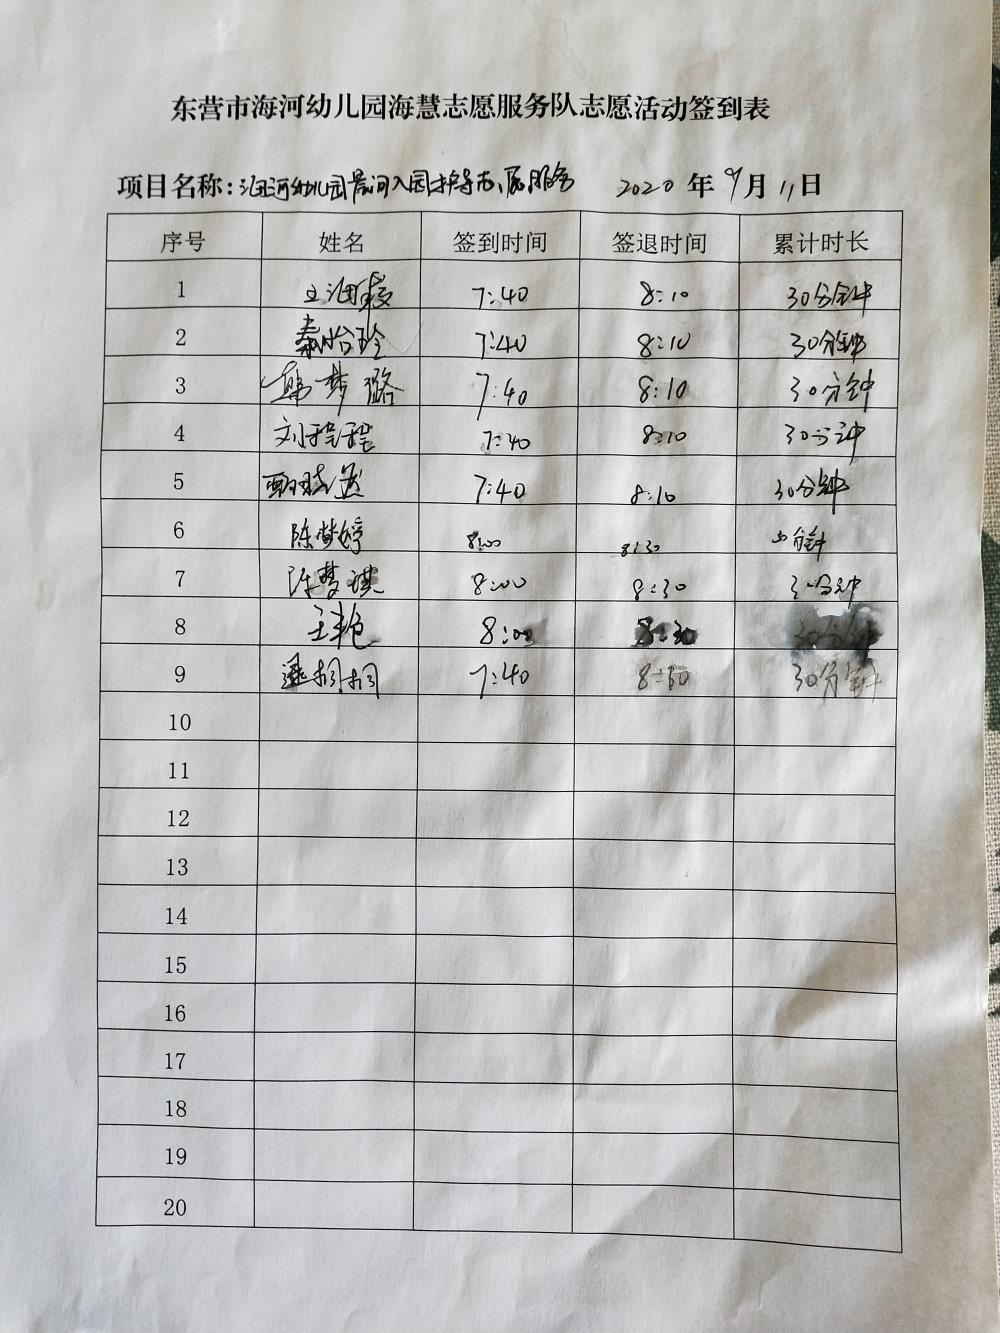 东营市海河幼儿园海慧志愿服务队志愿活动签到表
项目名称：海河幼儿园晨间入园护导志愿服务 2020年9月11日
序号 姓名 签到时间 签退时间 累计时长
1 7:40 8:10 30分钟
2 秦怡玲 7:40 8:10 30分钟
3 韩梦璐 7:40 8:10 30分钟
4 刘程程 7:40 8:10 30分钟
5 7:40 8:10 30分钟
6 陈梦婷 8:00 8:30 分钟
7 陈梦琪 8:00 8:30 30分钟
8 王艳 8:00 8:30 30分钟
9 桐桐 7:40 30分钟
10
11
12
13
14
15
16
17
18
19
20